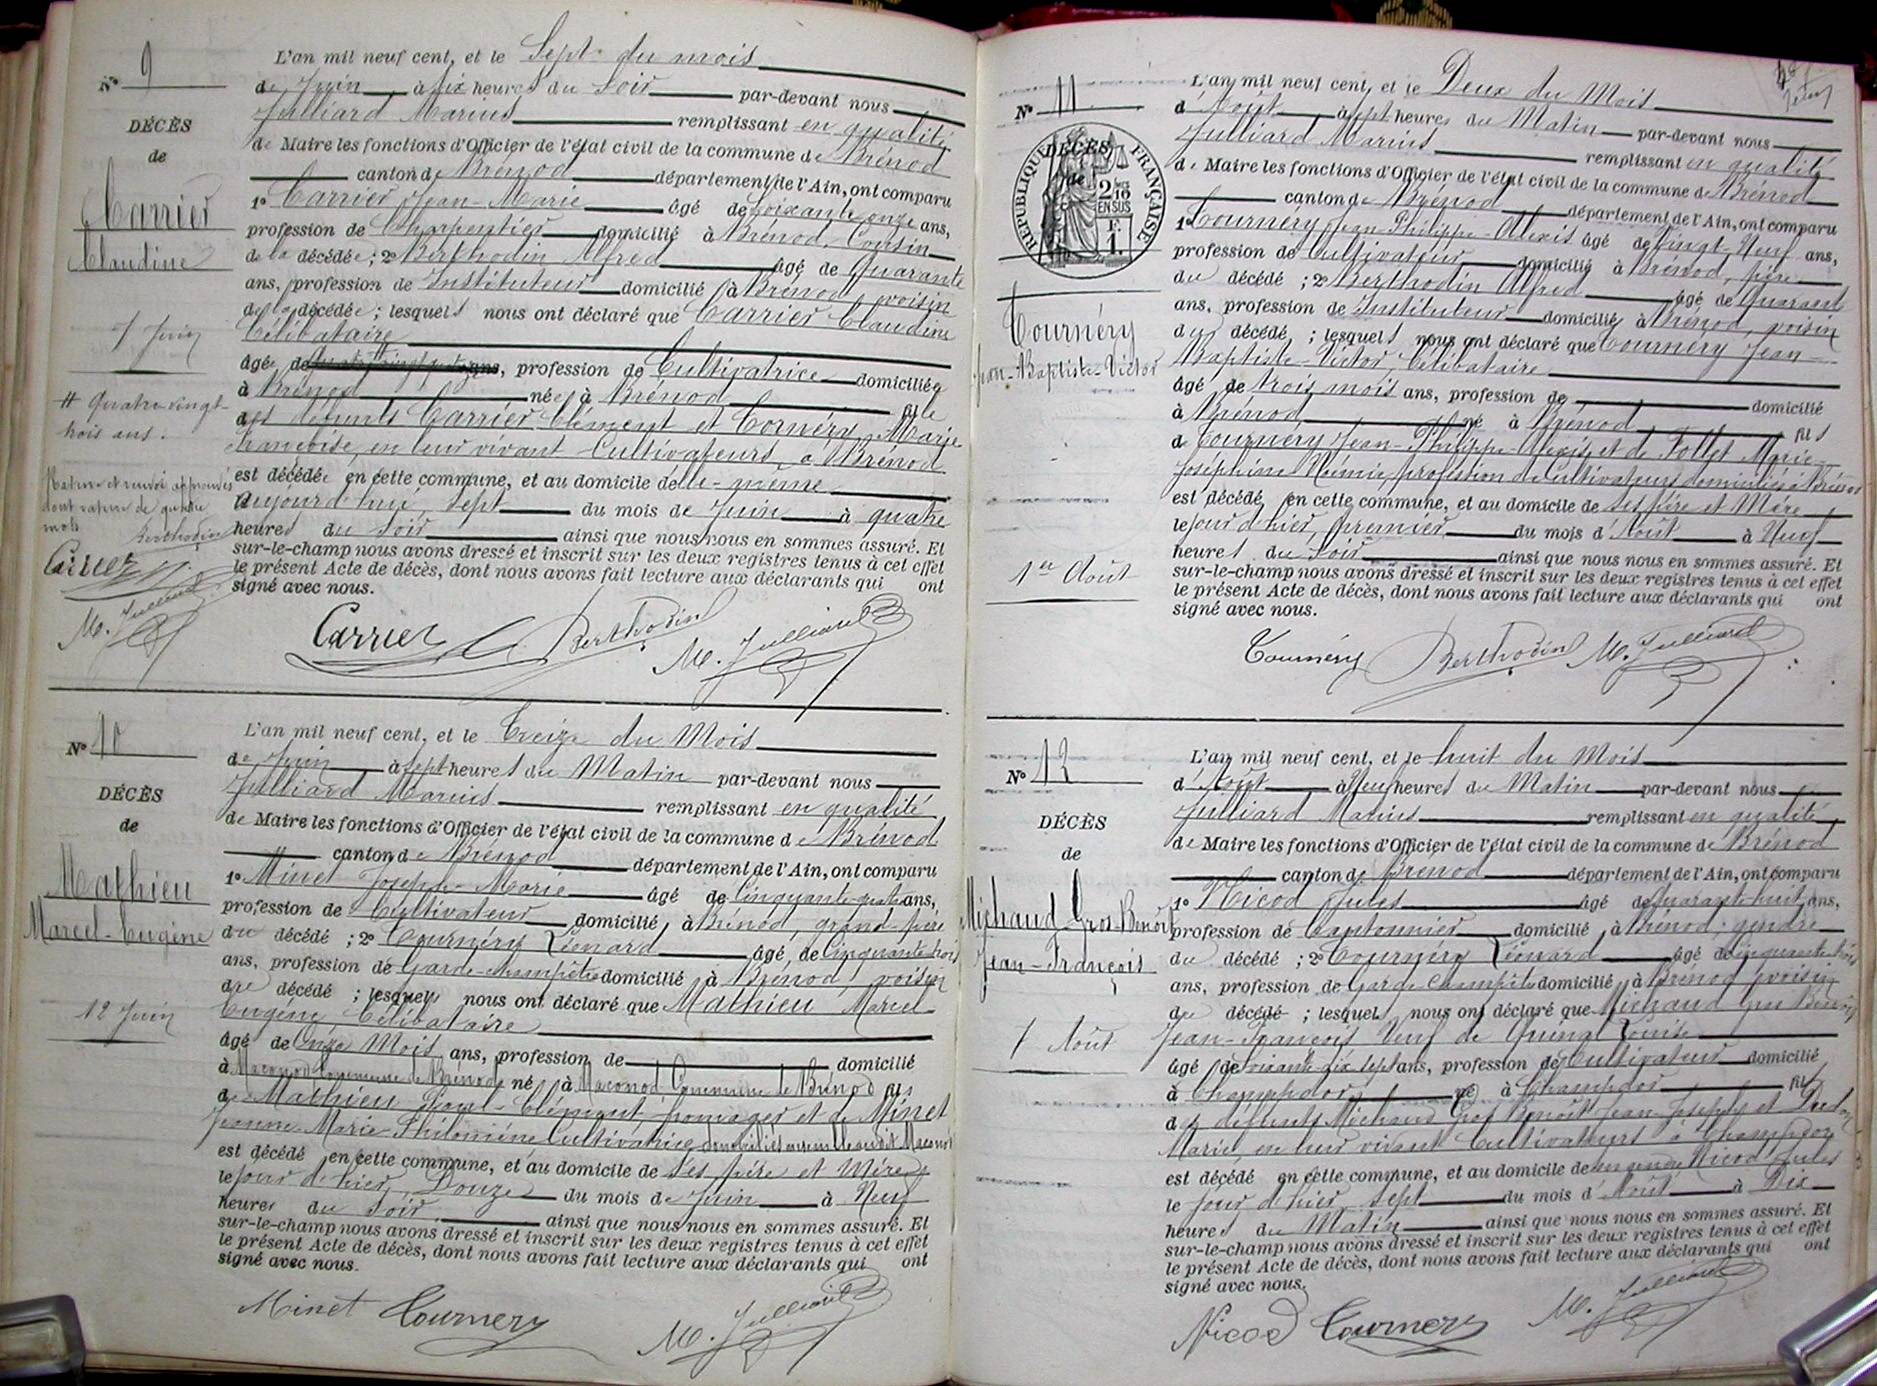 N° 9
DÉCÈS
de
Carrier
Claudine
7 Juin
# Quatre-vingt-
trois ans.
Rature et renvoi approuvés
dont rature de quatre
mots
Berthodin
Carrier
M. Julliard
L'an mil neuf cent, et le Sept du mois
de Juin à six heures du Soir par-devant nous
Julliard Marius remplissant en qualité
de Maire les fonctions d'Officier de l'état civil de la commune de Brénod
canton de Brénod département de l'Ain, ont comparu
1° Carrier Jean-Marie âgé de soixante onze ans,
profession de Charpentier domicilié à Brénod, Cousin
de la décédée ; 2° Berthodin Alfred âgé de Quarante
ans, profession de Instituteur domicilié à Brénod voisin
de la décédée ; lesquels nous ont déclaré que Carrier Claudine
Célibataire
âgée de ans, profession de Cultivatrice domiciliée
à Brénod née à Brénod fille
des défunts Carrier Clément et Cornéry Marie
Françoise, en leur vivant Cultivateurs, à Brénod
est décédée en cette commune, et au domicile de elle-même
aujourd'hui, Sept du mois de Juin à quatre
heures du Soir ainsi que nous nous en sommes assuré. Et
sur-le-champ nous avons dressé et inscrit sur les deux registres tenus à cet effet
le présent Acte de décès, dont nous avons fait lecture aux déclarants qui ont
signé avec nous.
Carrier Berthodin M. Julliard
N° 10
DÉCÈS
de
Mathieu
Marcel-Eugène
12 Juin
L'an mil neuf cent, et le Treize du Mois
de Juin à sept heures du Matin par-devant nous
Julliard Marius remplissant en qualité
de Maire les fonctions d'Officier de l'état civil de la commune de Brénod
canton de Brénod département de l'Ain, ont comparu
1° Minet Joseph-Marie âgé de Cinquante quatre ans,
profession de Cultivateur domicilié à Brénod, grand-père
du décédé ; 2° Tournéry Léonard âgé de Cinquante trois
ans, profession de Garde-champêtre domicilié à Brénod voisin
du décédé ; lesquels nous ont déclaré que Mathieu Marcel
Eugène Célibataire
âgé de Onze Mois ans, profession de domicilié
à Maconod Commune de Brénod né à Maconod Commune de Brénod fils
de Mathieu Clément fromager et de Minet
Jeanne-Marie-Philomène Cultivatrice
est décédé en cette commune, et au domicile de ses père et Mère
le jour d'hier, Douze du mois de Juin à Neuf
heures du Soir ainsi que nous nous en sommes assuré. Et
sur-le-champ nous avons dressé et inscrit sur les deux registres tenus à cet effet
le présent Acte de décès, dont nous avons fait lecture aux déclarants qui ont
signé avec nous.
Minet Tournery M. Julliard
N° 11
DÉCÈS
de
RÉPUBLIQUE FRANÇAISE
2/10 EN SUS
Tournéry
Jean-Baptiste-Victor
1er Août
L'an mil neuf cent, et le Deux du Mois
d'Août à sept heures du Matin par-devant nous
Julliard Marius remplissant en qualité
de Maire les fonctions d'Officier de l'état civil de la commune de Brénod
canton de Brénod département de l'Ain, ont comparu
1° Tournéry Jean-Philippe-Alexis âgé de Vingt-Neuf ans,
profession de Cultivateur domicilié à Brénod, père
du décédé ; 2° Berthodin Alfred âgé de Quarante
ans, profession de Instituteur domicilié à Brénod, voisin
du décédé ; lesquels nous ont déclaré que Tournéry Jean-
Baptiste-Victor, Célibataire
âgé de trois mois ans, profession de domicilié
à Brénod né à Brénod fils
de Tournéry Jean-Philippe-Alexis et de Follet Marie-
Joséphine Noémie, profession de Cultivateurs domiciliés à Brénod
est décédé en cette commune, et au domicile de ses père et Mère
le jour d'hier, premier du mois d'Août à Neuf
heures du Soir ainsi que nous nous en sommes assuré. Et
sur-le-champ nous avons dressé et inscrit sur les deux registres tenus à cet effet
le présent Acte de décès, dont nous avons fait lecture aux déclarants qui ont
signé avec nous.
Tournéry Berthodin M. Julliard
N° 12
DÉCÈS
de
Michaud Gros-Benoît
Jean-François
7 Août
L'an mil neuf cent, et le huit du Mois
d'Août à Neuf heures du Matin par-devant nous
Julliard Marius remplissant en qualité
de Maire les fonctions d'Officier de l'état civil de la commune de Brénod
canton de Brénod département de l'Ain, ont comparu
1° Nicod Jules âgé de quarante huit ans,
profession de Cantonnier domicilié à Brénod, gendre
du décédé ; 2° Tournéry Léonard âgé de cinquante trois
ans, profession de Garde Champêtre domicilié à Brénod voisin
du décédé ; lesquels nous ont déclaré que Michaud Gros Benoît
Jean-François Veuf de Quinal Louise
âgé de soixante dix sept ans, profession de Cultivateur domicilié
à Champdor né à Champdor fils
des défunts Michaud Gros Benoît Jean Joseph et
Marie, en leur vivant Cultivateurs à Champdor
est décédé en cette commune, et au domicile de son gendre Nicod Jules
le jour d'hier sept du mois d'Août à Dix
heures du Matin ainsi que nous nous en sommes assuré. Et
sur-le-champ nous avons dressé et inscrit sur les deux registres tenus à cet effet
le présent Acte de décès, dont nous avons fait lecture aux déclarants qui ont
signé avec nous.
Nicod Tournery M. Julliard